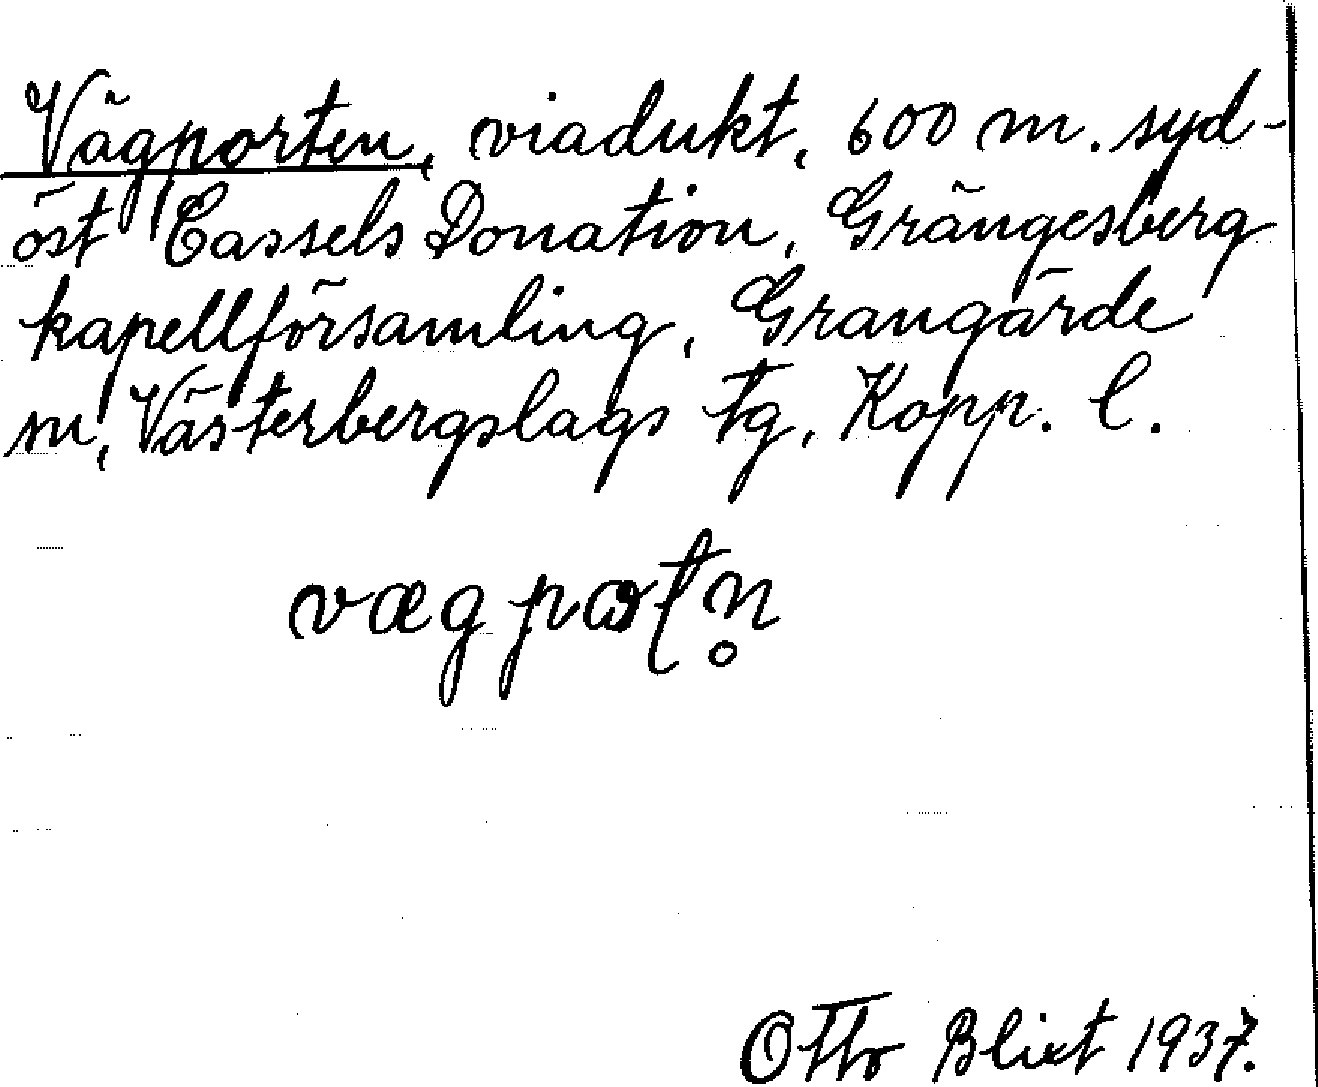 Vägporten, viadukt, 600 m. syd-
öst Cassels Donation, Grängesberg
kapellförsamling, Grangärde
sn, Västerbergslags tg, Kopp. l.
vægpoʈn̥
Otto Blixt 1937.